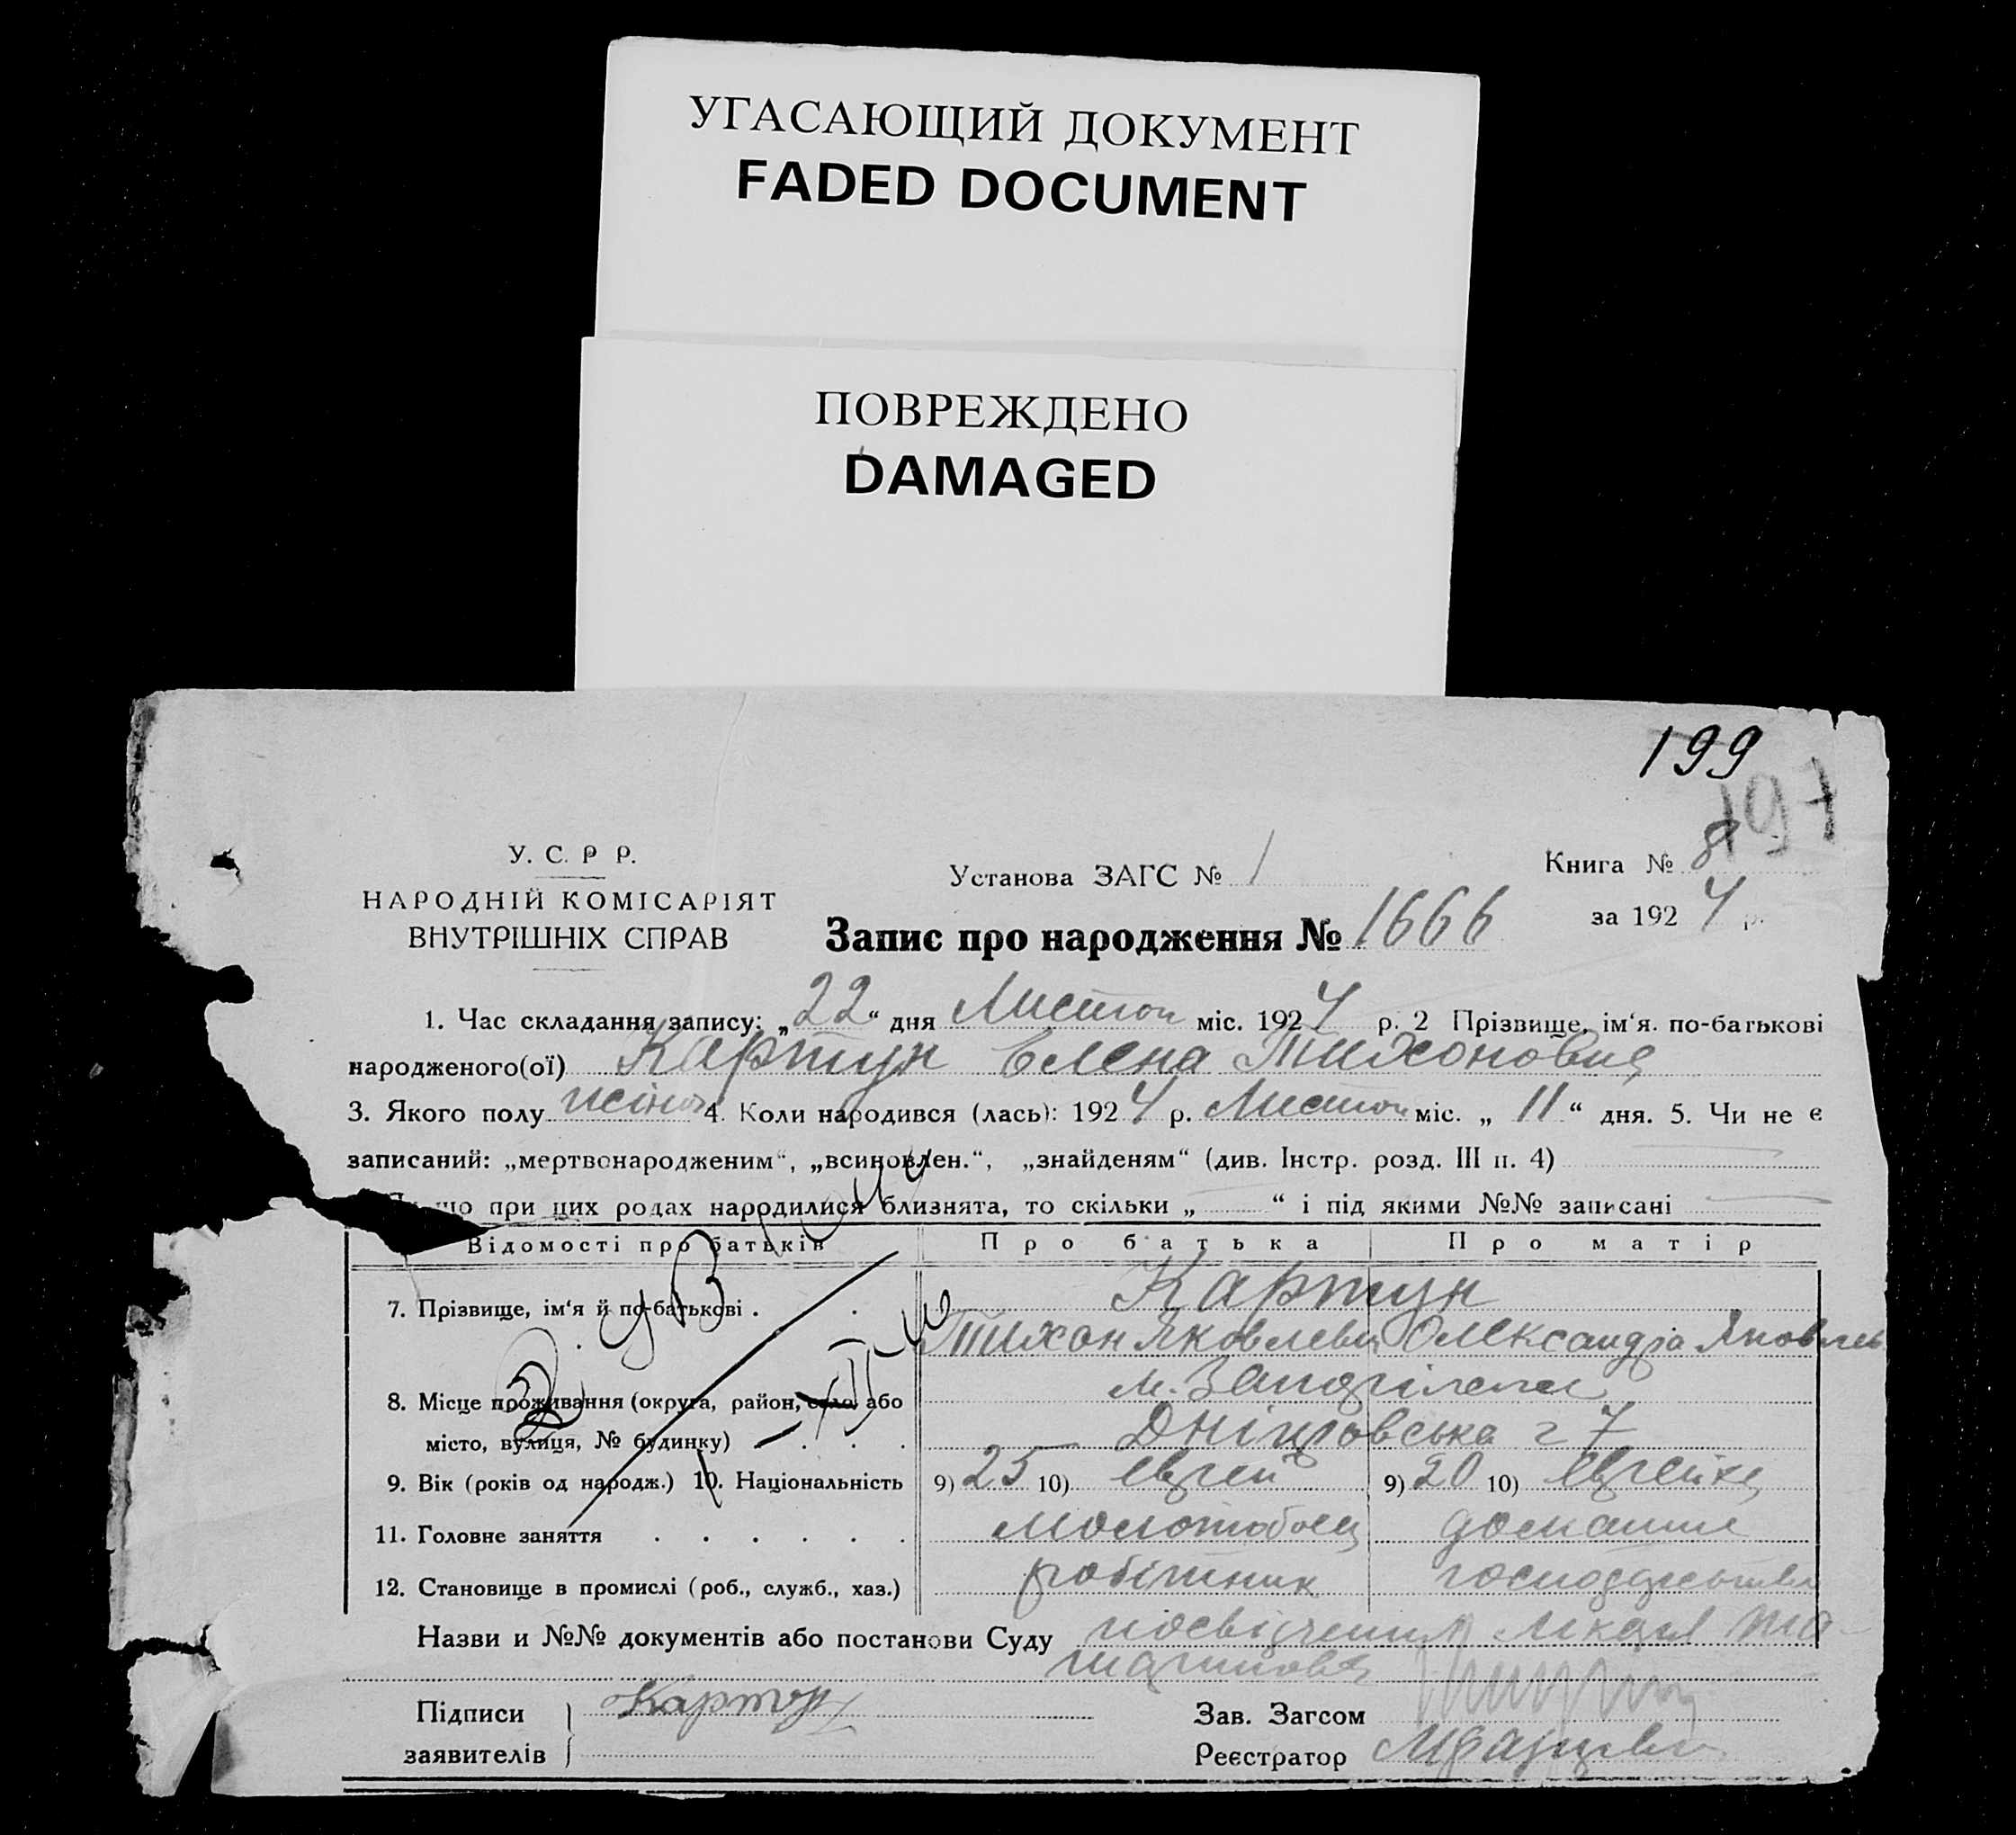 УГАСАЮЩИЙ ДОКУМЕНТ
FADED DOCUMENT
ПОВРЕЖДЕНО
DAMAGED
199
197
У. С. Р Р.
НАРОДНІЙ КОМІСАРІЯТ
ВНУТРІШНІХ СПРАВ
Установа ЗАГС № 1
Книга № 8
за 1924 р.
Запис про народження № 1666
1. Час складання запису: „22“ дня Листоп міс. 1924 р. 2 Прізвище, ім‘я. по-батькові
народженого(ої) Картун Елена Тихоновна
3. Якого полу жіноч 4. Коли народився (лась): 1924 р. Листоп міс. „ 11 “ дня. 5. Чи не є
записаний: „мертвонародженим“, „всиновлен.“, „знайденям“ (див. Інстр. розд. III п. 4)
що при цих родах народилися близнята, то скільки „ “ і під якими №№ записані
Відомості про батьків Про батька Про матір
7. Прізвище, ім‘я й по-батькові . . Картун
Тихон Яковлевич Олександра Яковлев
8. Місце проживання (округа, район, село або
місто, вулиця, № будинку) . . . Дніпровська 7
9. Вік (років од народж.) 10. Національність 9) 25 10) еврей 9) 20 10) еврейка
11. Головне заняття . . . . . . Молотобоец домашнє
12. Становище в промислі (роб., служб., хаз.) робітник господарство
Назви и №№ документів або постанови Суду посвідчення лікаря
Підписи
заявителів
Картун
Зав. Загсом
Реєстратор